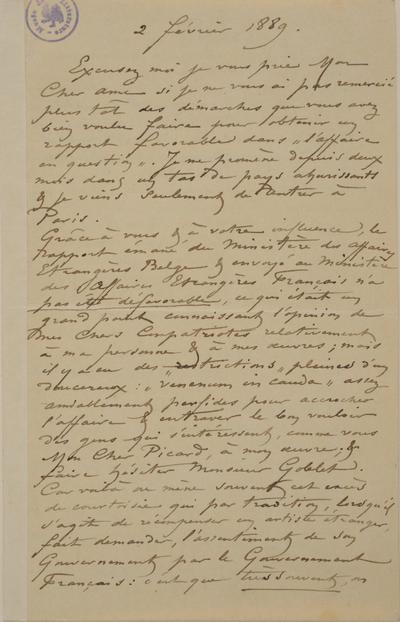 2 février 1889.
Excusez moi je vous prie Mon
Cher ami si je ne vous ai pas remercié
plus tôt des démarches que vous avez
bien voulu faire pour obtenir un
rapport favorable dans "l'affaire
en question". Je me promène depuis deux
mois dans un tas de pays ahurissants
& je viens seulement de rentrer à
Paris.
Grâce à vous & à votre influence, le
rapport émané du Ministère des Affaires
Etrangères Belge & envoyé au Ministère
des Affaires Etrangères Français n'a
pas été défavorable, ce qui était un
grand point connaissant l'opinion de
mes chers Compatriotes relativement
à ma personne & à mes œuvres; mais
il y a eu des "restrictions" pleines d'un
doucereux: "venenum in cauda" assez
amiablement perfides pour accrocher
l'affaire & entraver le bon vouloir
des gens qui s'intéressent, comme vous
Mon Cher Picard, à mon œuvre, &
faire hésiter Monsieur Goblet.
Car voilà où mène souvent cet excès
de courtoisie qui par tradition, lorsqu'il
s'agit de récompenser un artiste étranger,
fait demander, l'assentiment de son
Gouvernement par le Gouvernement
Français: c'est que très souvent, on